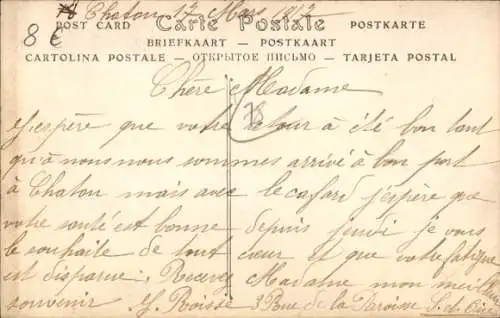 Chatou 17 Mars 1913
8 €
POST CARD Carte Postale POSTKARTE
BRIEFKAART — POSTKAART
CARTOLINA POSTALE — ОТКРЫТОЕ ПИСЬМО — TARJETA POSTAL
78
Chère Madame
J'espère que votre retour a été bon tant
qu'à nous nous sommes arrivé à bon port
à Chatou mais avec le cafard j'espère que
votre santé est bonne depuis jeudi je vous
le souhaite de tout cœur et que votre fatigue
est disparue. Recevez Madame mon meilleur
souvenir Y. Roisse 3 Rue de la Paroisse S. et Oise